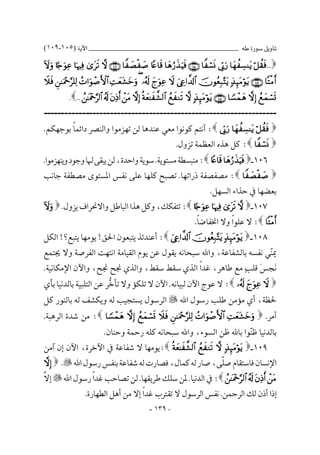 تأويل سورة طه ـــــــ الآية (١٠٥-١٠٩)
﴿... فَقُلْ يَنسِفُهَا رَبِّي نَسْفًا ۝ فَيَذَرُهَا قَاعًا صَفْصَفًا ۝ لَّا تَرَىٰ فِيهَا عِوَجًا وَلَا
أَمْتًا ۝ يَوْمَئِذٍ يَتَّبِعُونَ الدَّاعِيَ لَا عِوَجَ لَهُ ۖ وَخَشَعَتِ الْأَصْوَاتُ لِلرَّحْمَٰنِ فَلَا
تَسْمَعُ إِلَّا هَمْسًا ۝ يَوْمَئِذٍ لَّا تَنفَعُ الشَّفَاعَةُ إِلَّا مَنْ أَذِنَ لَهُ الرَّحْمَٰنُ ...﴾
﴿فَقُلْ يَنسِفُهَا رَبِّي﴾: أنتم كونوا معي عندها لن تهزموا والنصر دائماً بوجهكم.
﴿نَسْفًا﴾: كل هذه العظمة تزول.
١٠٦-﴿فَيَذَرُهَا قَاعًا﴾: منبسطة مستوية. سوية واحدة، لن يبقى لها وجود وينهزموا.
﴿صَفْصَفًا﴾: مصفصفة ذراتها. تصبح كلها على نفس المستوى مصطفة جانب
بعضها في حذاء السهل.
١٠٧-﴿لَّا تَرَىٰ فِيهَا عِوَجًا﴾: تتفكك، وكل هذا الباطل والانحراف يزول. ﴿وَلَا
أَمْتًا﴾: لا علوا ولا انخفاضاً.
١٠٨-﴿يَوْمَئِذٍ يَتَّبِعُونَ الدَّاعِيَ﴾: أعندئذ يتبعون الحق! يومها يتبع؟! الكل
يمنّي نفسه بالشفاعة، والله سبحانه يقول عن يوم القيامة انتهت الفرصة ولا يجتمع
نجس قلب مع طاهر، غداً الذي سقط سقط، والذي نجح نجح، والآن الإمكانية.
﴿لَا عِوَجَ لَهُ﴾: لا عوج الآن لبيانه. الآن لا تلكؤ ولا تأخر عن التلبية بالدنيا بأي
لحظة، أي مؤمن طلب رسول الله ﷺ الرسول يستجيب له ويكشف له بالنور كل
أمر. ﴿وَخَشَعَتِ الْأَصْوَاتُ لِلرَّحْمَٰنِ فَلَا تَسْمَعُ إِلَّا هَمْسًا﴾: من شدة الرهبة.
بالدنيا ظنّوا بالله ظن السوء، والله سبحانه كله رحمة وحنان.
١٠٩-﴿يَوْمَئِذٍ لَّا تَنفَعُ الشَّفَاعَةُ﴾: يومها لا شفاعة في الآخرة، الآن إن آمن
الإنسان فاستقام صلّى، صار له كمال، فصارت له شفاعة بنفس رسول الله ﷺ. ﴿إِلَّا
مَنْ أَذِنَ لَهُ الرَّحْمَٰنُ﴾: في الدنيا. لمن سلك طريقها. لن تصاحب غداً رسول الله ﷺ إلاّ
إذا أذن لك الرحمن. نفس الرسول لا تقترب غداً إلا من أهل الطهارة.
- ١٣٩ -